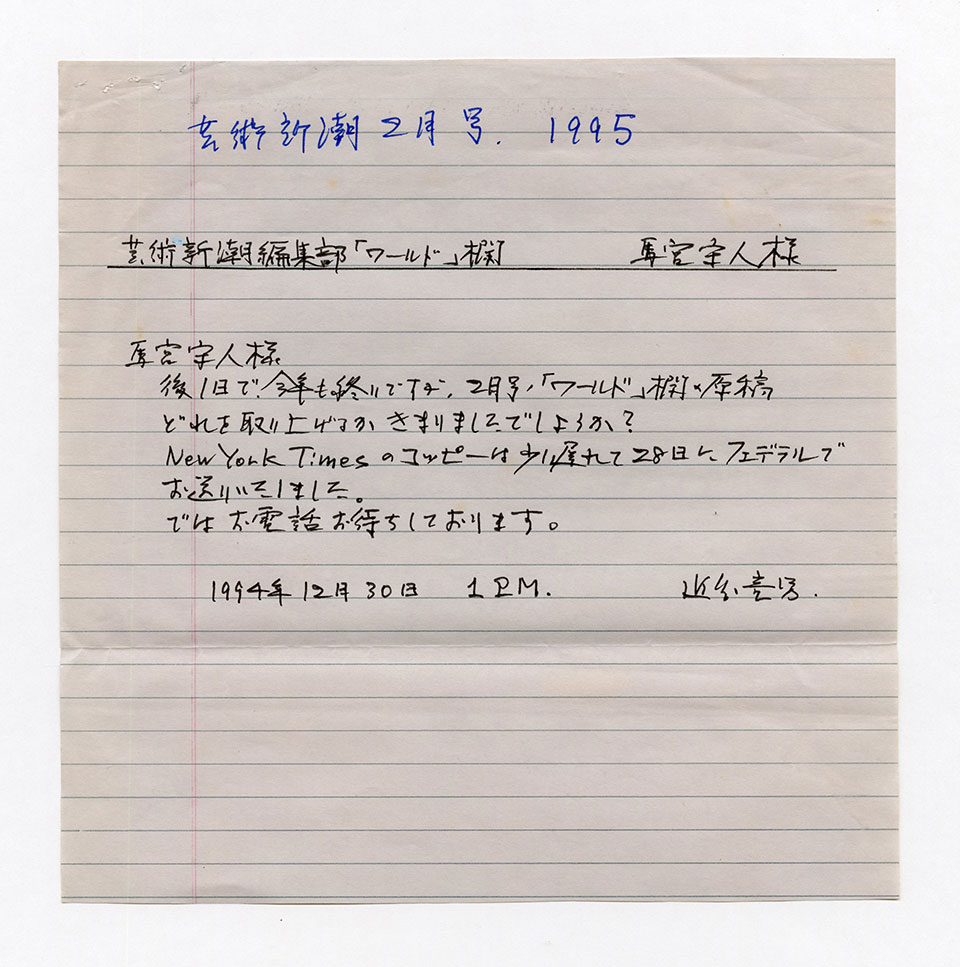 芸術新潮2月号. 1995
芸術新潮編集部「ワールド」欄 馬宮守人様
馬宮守人様
後1日で今年も終りですが、2月号ノ「ワールド」欄の原稿
どれを取り上げるかきまりましたでしょうか?
New York Timesのコッピーは少し遅れて28日にフェデラルで
お送りいたしました。
ではお電話お待ちしております。
1994年12月30日 1P.M. 近藤竜男.